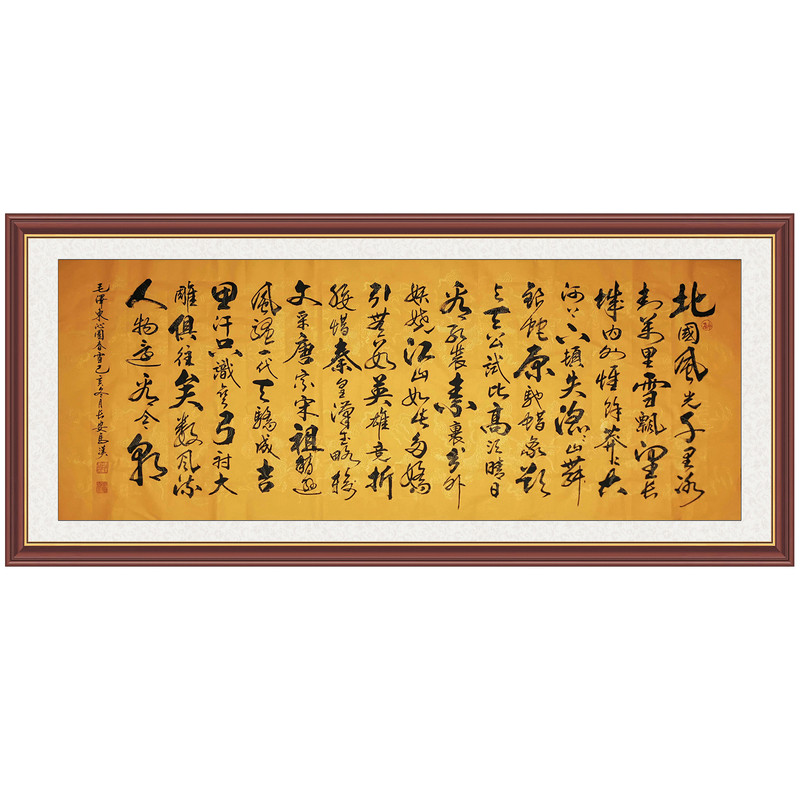 北國風光千里冰
封萬里雪飄望長
城内外惟餘莽々大
河上下頓失滔々山舞
銀蛇原馳蜡象欲
与天公試比高須晴日
看紅裝素裹分外
妖嬈江山如此多嬌
引無数英雄竞折
腰惜秦皇漢武略輸
文采唐宗宋祖稍遜
風騷一代天驕成吉
思汗只識彎弓射大
雕俱往矣數風流
人物還看今朝
毛澤東沁園春雪己亥冬月長安